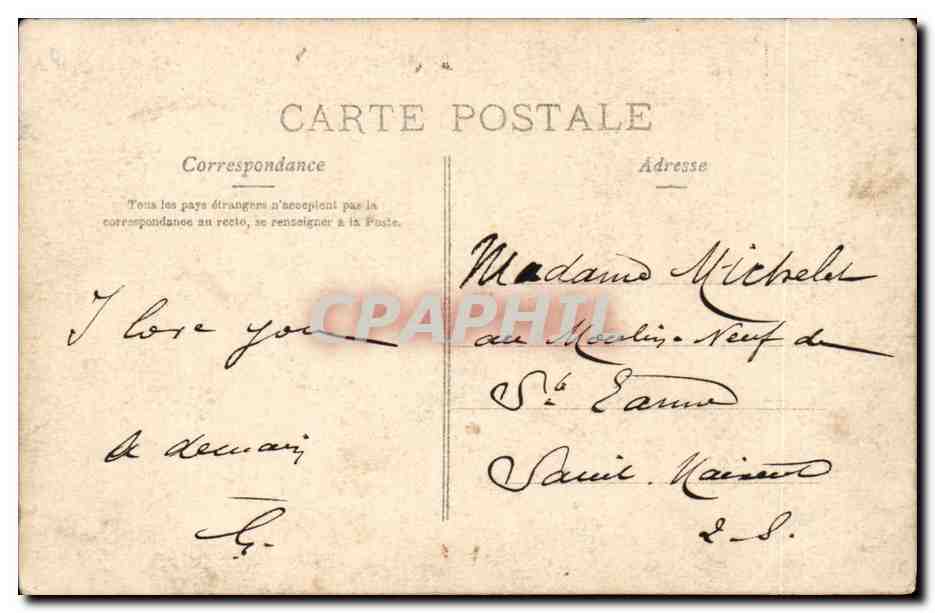 CARTE POSTALE
Correspondance
Tous les pays étrangers n'acceptent pas la
correspondance au recto, se renseigner à la Poste.
I love you
a demain
G.
Adresse
Madame Michelet
au Moulin-Neuf de
Ste Eanne
Saint Maixent
2-S.
CPAPHIL